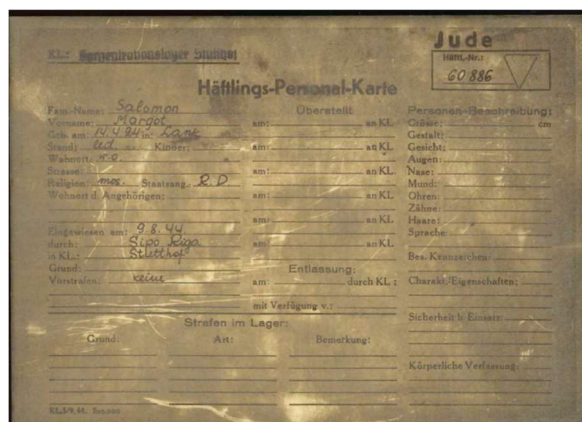 Jude
KL.: Konzentrationslager Stutthof
Häftl.-Nr.:
60 886
Häftlings-Personal-Karte
Fam.-Name: Salomon
Vorname: Margot
Geb. am: 14.4.24 in:
Stand: led. Kinder:
Wohnort:
Strasse:
Religion: mos. Staatsang. R.D.
Wohnort d. Angehörigen:
Eingewiesen am: 9.8.44.
durch: Sipo Riga
in KL.: Stutthof
Grund:
Vorstrafen: keine
Überstellt
am: an KL.
am: an KL.
am: an KL.
am: an KL.
am: an KL.
am: an KL.
Entlassung:
am: durch KL.:
mit Verfügung v.:
Personen-Beschreibung:
Grösse: cm
Gestalt:
Gesicht:
Augen:
Nase:
Mund:
Ohren:
Zähne:
Haare:
Sprache:
Bes. Kennzeichen:
Charakt./Eigenschaften:
Sicherheit b. Einsatz:
Körperliche Verfassung:
Strafen im Lager:
Grund: Art: Bemerkung: